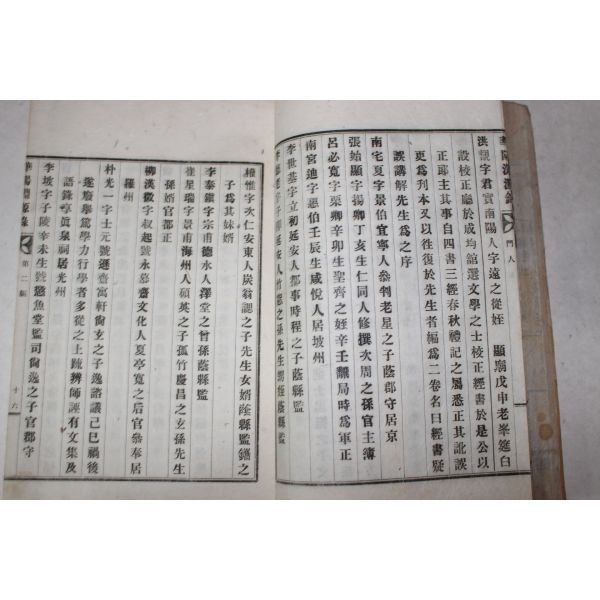 華陽淵源錄 門人
洪 字君實南陽人字遠之從姪 顯廟戊申老峯筵白
設校正廳於成均館選文學之士校正經書於是公以
正廳上其事自四書三經春秋禮記之屬悉正其訛誤
更爲列本又以徃復於先生者編爲二卷名曰經書疑
誤講解先生爲之序
南宅夏字景伯宜寧人參判老星之子蔭郡守居京
張始顯字揚卿丁亥生仁同人修撰次周之孫官主簿
呂必寬字栗卿辛卯生聖齊之姪辛壬離局時爲軍正
南宮迪字惠伯壬辰生咸悅人居坡州
李世基字立初延安人都事時程之子蔭縣監
延安人竹 之孫先生甥 蔭縣監
權惟字次仁安東人炭翁諰之子先生女婿蔭縣監
子爲其妹婿
李泰鎭字宗甫德水人澤堂之曾孫蔭縣監
崔星瑞字景甫海州人碩英之子孤竹慶昌之玄孫先生
孫婿官都正
柳漢徵字叔起號永慕齋文化人夏亭寬之后官參奉居
羅州
朴光一字士元號遜齋寓軒尙玄之子逸諮議己巳禍後
遂廢擧篤學力行學者多從之上疏辨師誣有文集及
語錄享眞泉祠居光州
李坡字子陵辛未生號憗魚堂監司尙逸之子官郡守
華陽淵源錄 第二編 十六